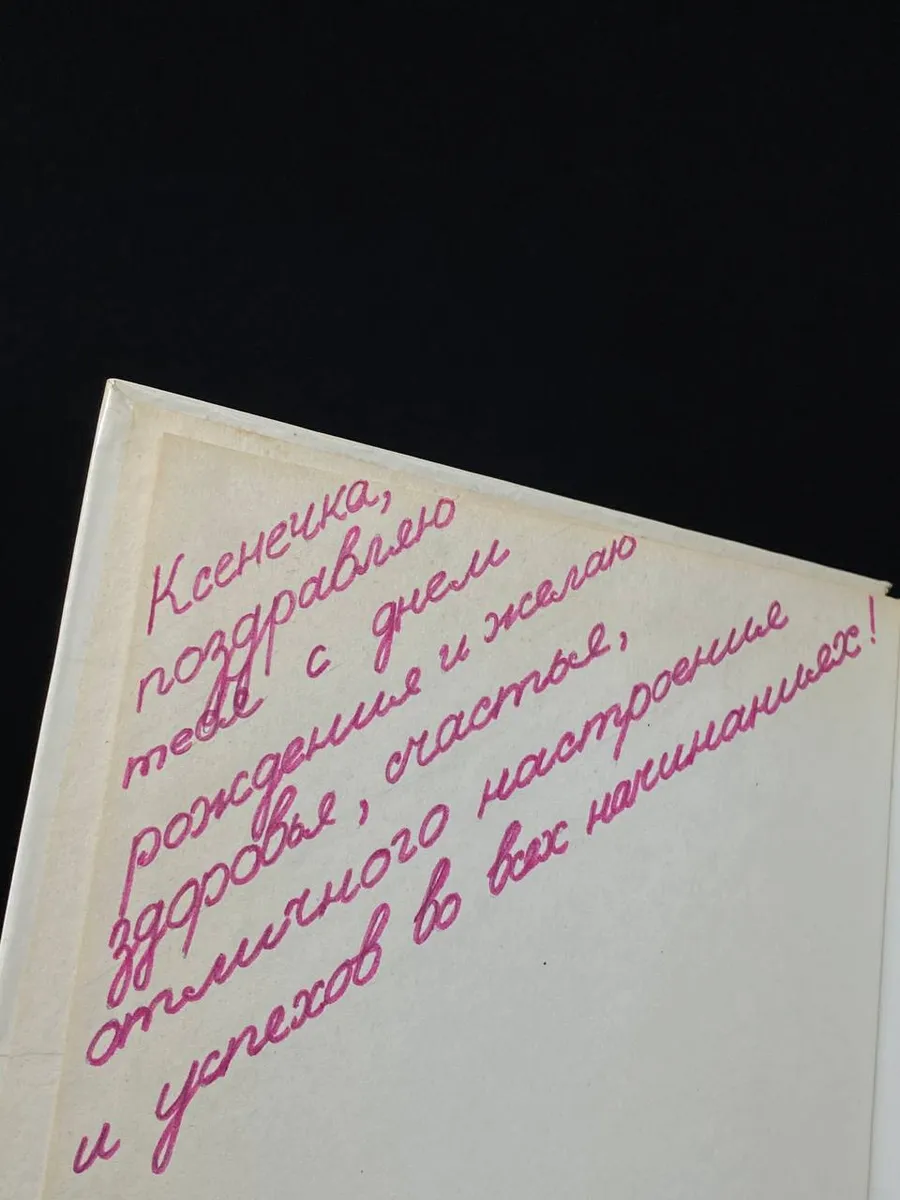 Ксенечка,
поздравляю
тебя с днем
рождения и желаю
здоровья, счастья,
отличного настроения
и успехов во всех начинаниях!